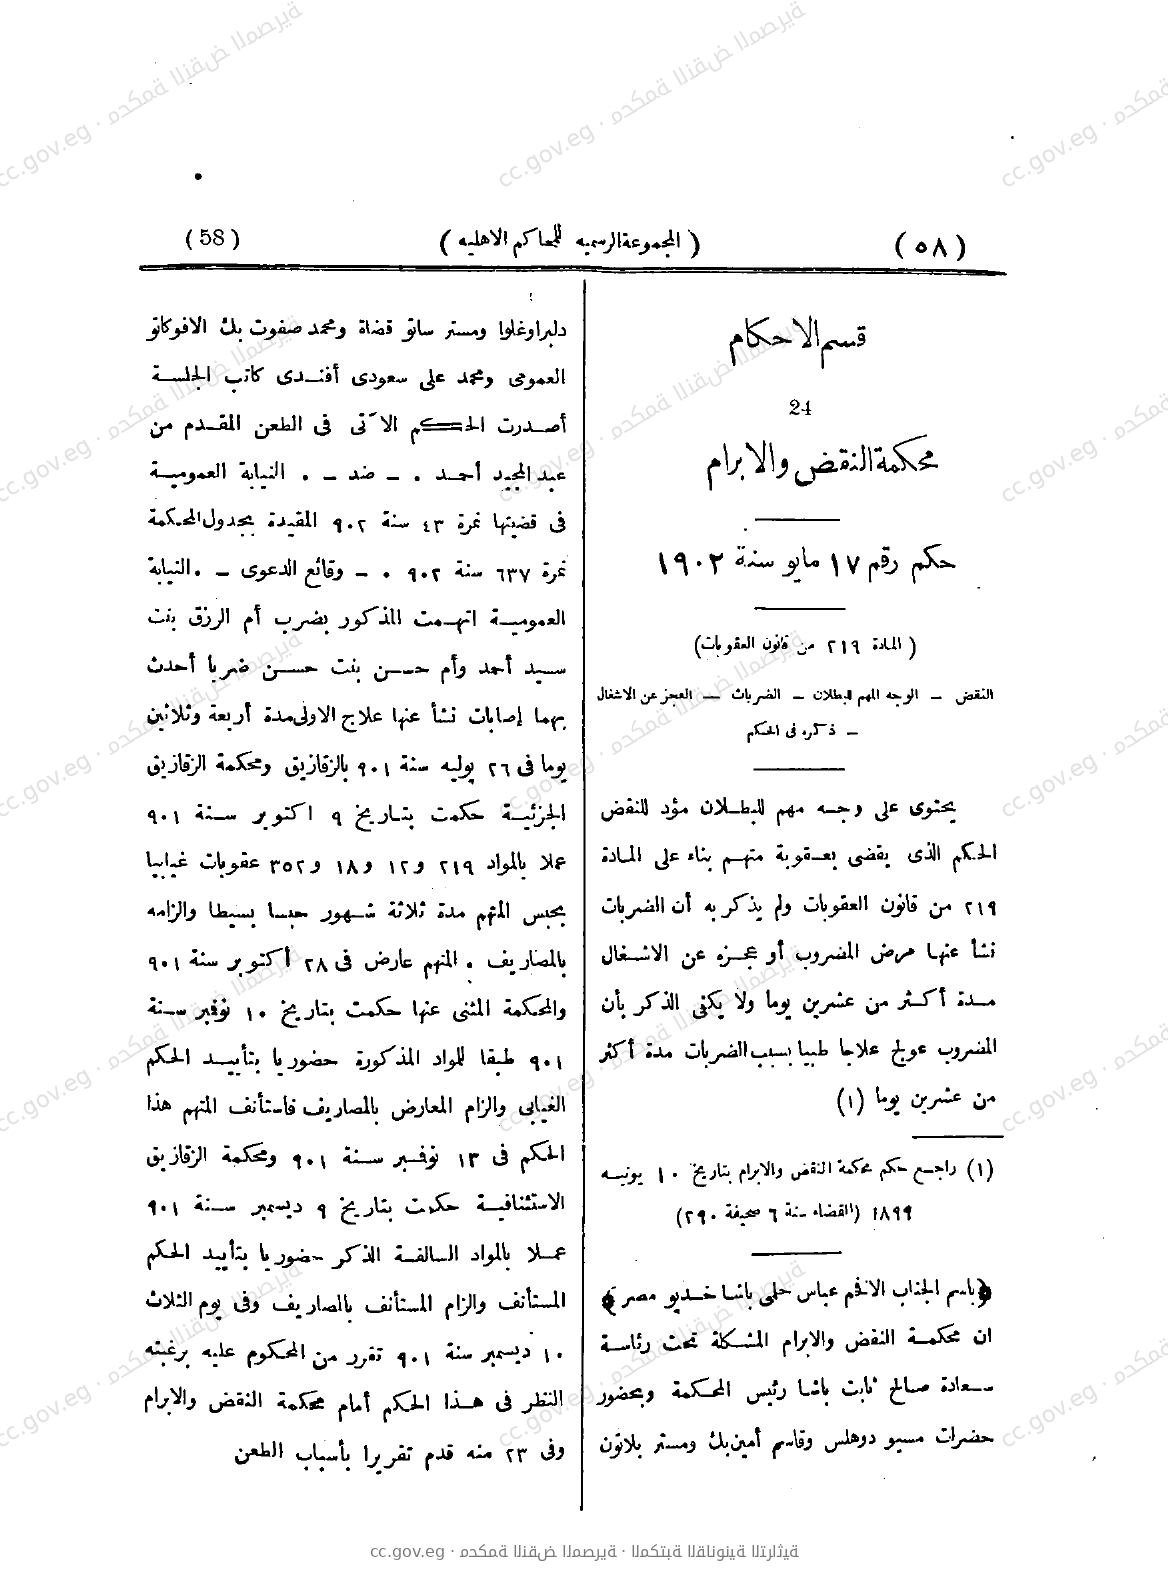 (٥٨)
(المجموعة الرسميه للمحاكم الاهليه)
(58)
قسم الاحكام
24
محكمة النقض والابرام
حكم رقم ١٧ مايو سنة ١٩٠٢
(المادة ٢١٩ من قانون العقوبات)
النقض – الوجه المهم للبطلان – الضربات – العجز عن الاشغال
– ذكره فى الحكم
يحتوى على وجه مهم للبطلان مؤد للنقض
الحكم الذى يقضى بعقوبة متهم بناء على المادة
٢١٩ من قانون العقوبات ولم يذكر به أن الضربات
نشأ عنها مرض المضروب أو عجزه عن الاشغال
مدة أكثر من عشرين يوما ولا يكفى الذكر بأن
المضروب عولج علاجا طبيا بسبب الضربات مدة أكثر
من عشرين يوما (١)
(١) راجع حكم محكمة النقض والابرام بتاريخ ١٠ يونيه
١٨٩٩ (القضاء سنة ٦ صحيفة ٢٩٠)
﴿باسم الجناب الافخم عباس حلمى باشا خديو مصر﴾
ان محكمة النقض والابرام المشكلة تحت رئاسة
سعادة صالح ثابت باشا رئيس المحكمة وبحضور
حضرات مسيو دوهلس وقاسم أمين بك ومستر بلاتون
دلبراوغلوا ومستر ساتو قضاة ومحمد صفوت بك الافوكاتو
العمومى ومحمد على سعودى أفندى كاتب الجلسة
أصدرت الحكم الآتى فى الطعن المقدم من
عبد المجيد أحمد . – ضد – . النيابة العمومية
فى قضيتها نمرة ٤٣ سنة ٩٠٢ المقيدة بجدول المحكمة
نمرة ٦٣٧ سنة ٩٠٢ . – وقائع الدعوى – . النيابة
العمومية اتهمت المذكور بضرب أم الرزق بنت
سيد أحمد وأم حسن بنت حسن ضربا أحدث
بهما إصابات نشأ عنها علاج الاولى مدة أربعة وثلاثين
يوما فى ٢٦ يوليه سنة ٩٠١ بالزقازيق ومحكمة الزقازيق
الجزئية حكمت بتاريخ ٩ اكتوبر سنة ٩٠١
عملا بالمواد ٢١٩ و١٢ و١٨ و٣٥٢ عقوبات غيابيا
بحبس المتهم مدة ثلاثة شهور حبسا بسيطا والزامه
بالمصاريف . المتهم عارض فى ٢٨ أكتوبر سنة ٩٠١
والمحكمة المثنى عنها حكمت بتاريخ ١٠ نوفمبر سنة
٩٠١ طبقا للمواد المذكورة حضوريا بتأييد الحكم
الغيابى والزام المعارض بالمصاريف فاستأنف المتهم هذا
الحكم فى ١٣ نوفمبر سنة ٩٠١ ومحكمة الزقازيق
الاستئنافية حكمت بتاريخ ٩ ديسمبر سنة ٩٠١
عملا بالمواد السالفة الذكر حضوريا بتأييد الحكم
المستأنف والزام المستأنف بالمصاريف وفى يوم الثلاث
١٠ ديسمبر سنة ٩٠١ تقرر من المحكوم عليه برغبته
النظر فى هذا الحكم أمام محكمة النقض والابرام
وفى ٢٣ منه قدم تقريرا بأسباب الطعن
cc.gov.eg · محكمة النقض المصرية · المكتبة القانونية التراثية